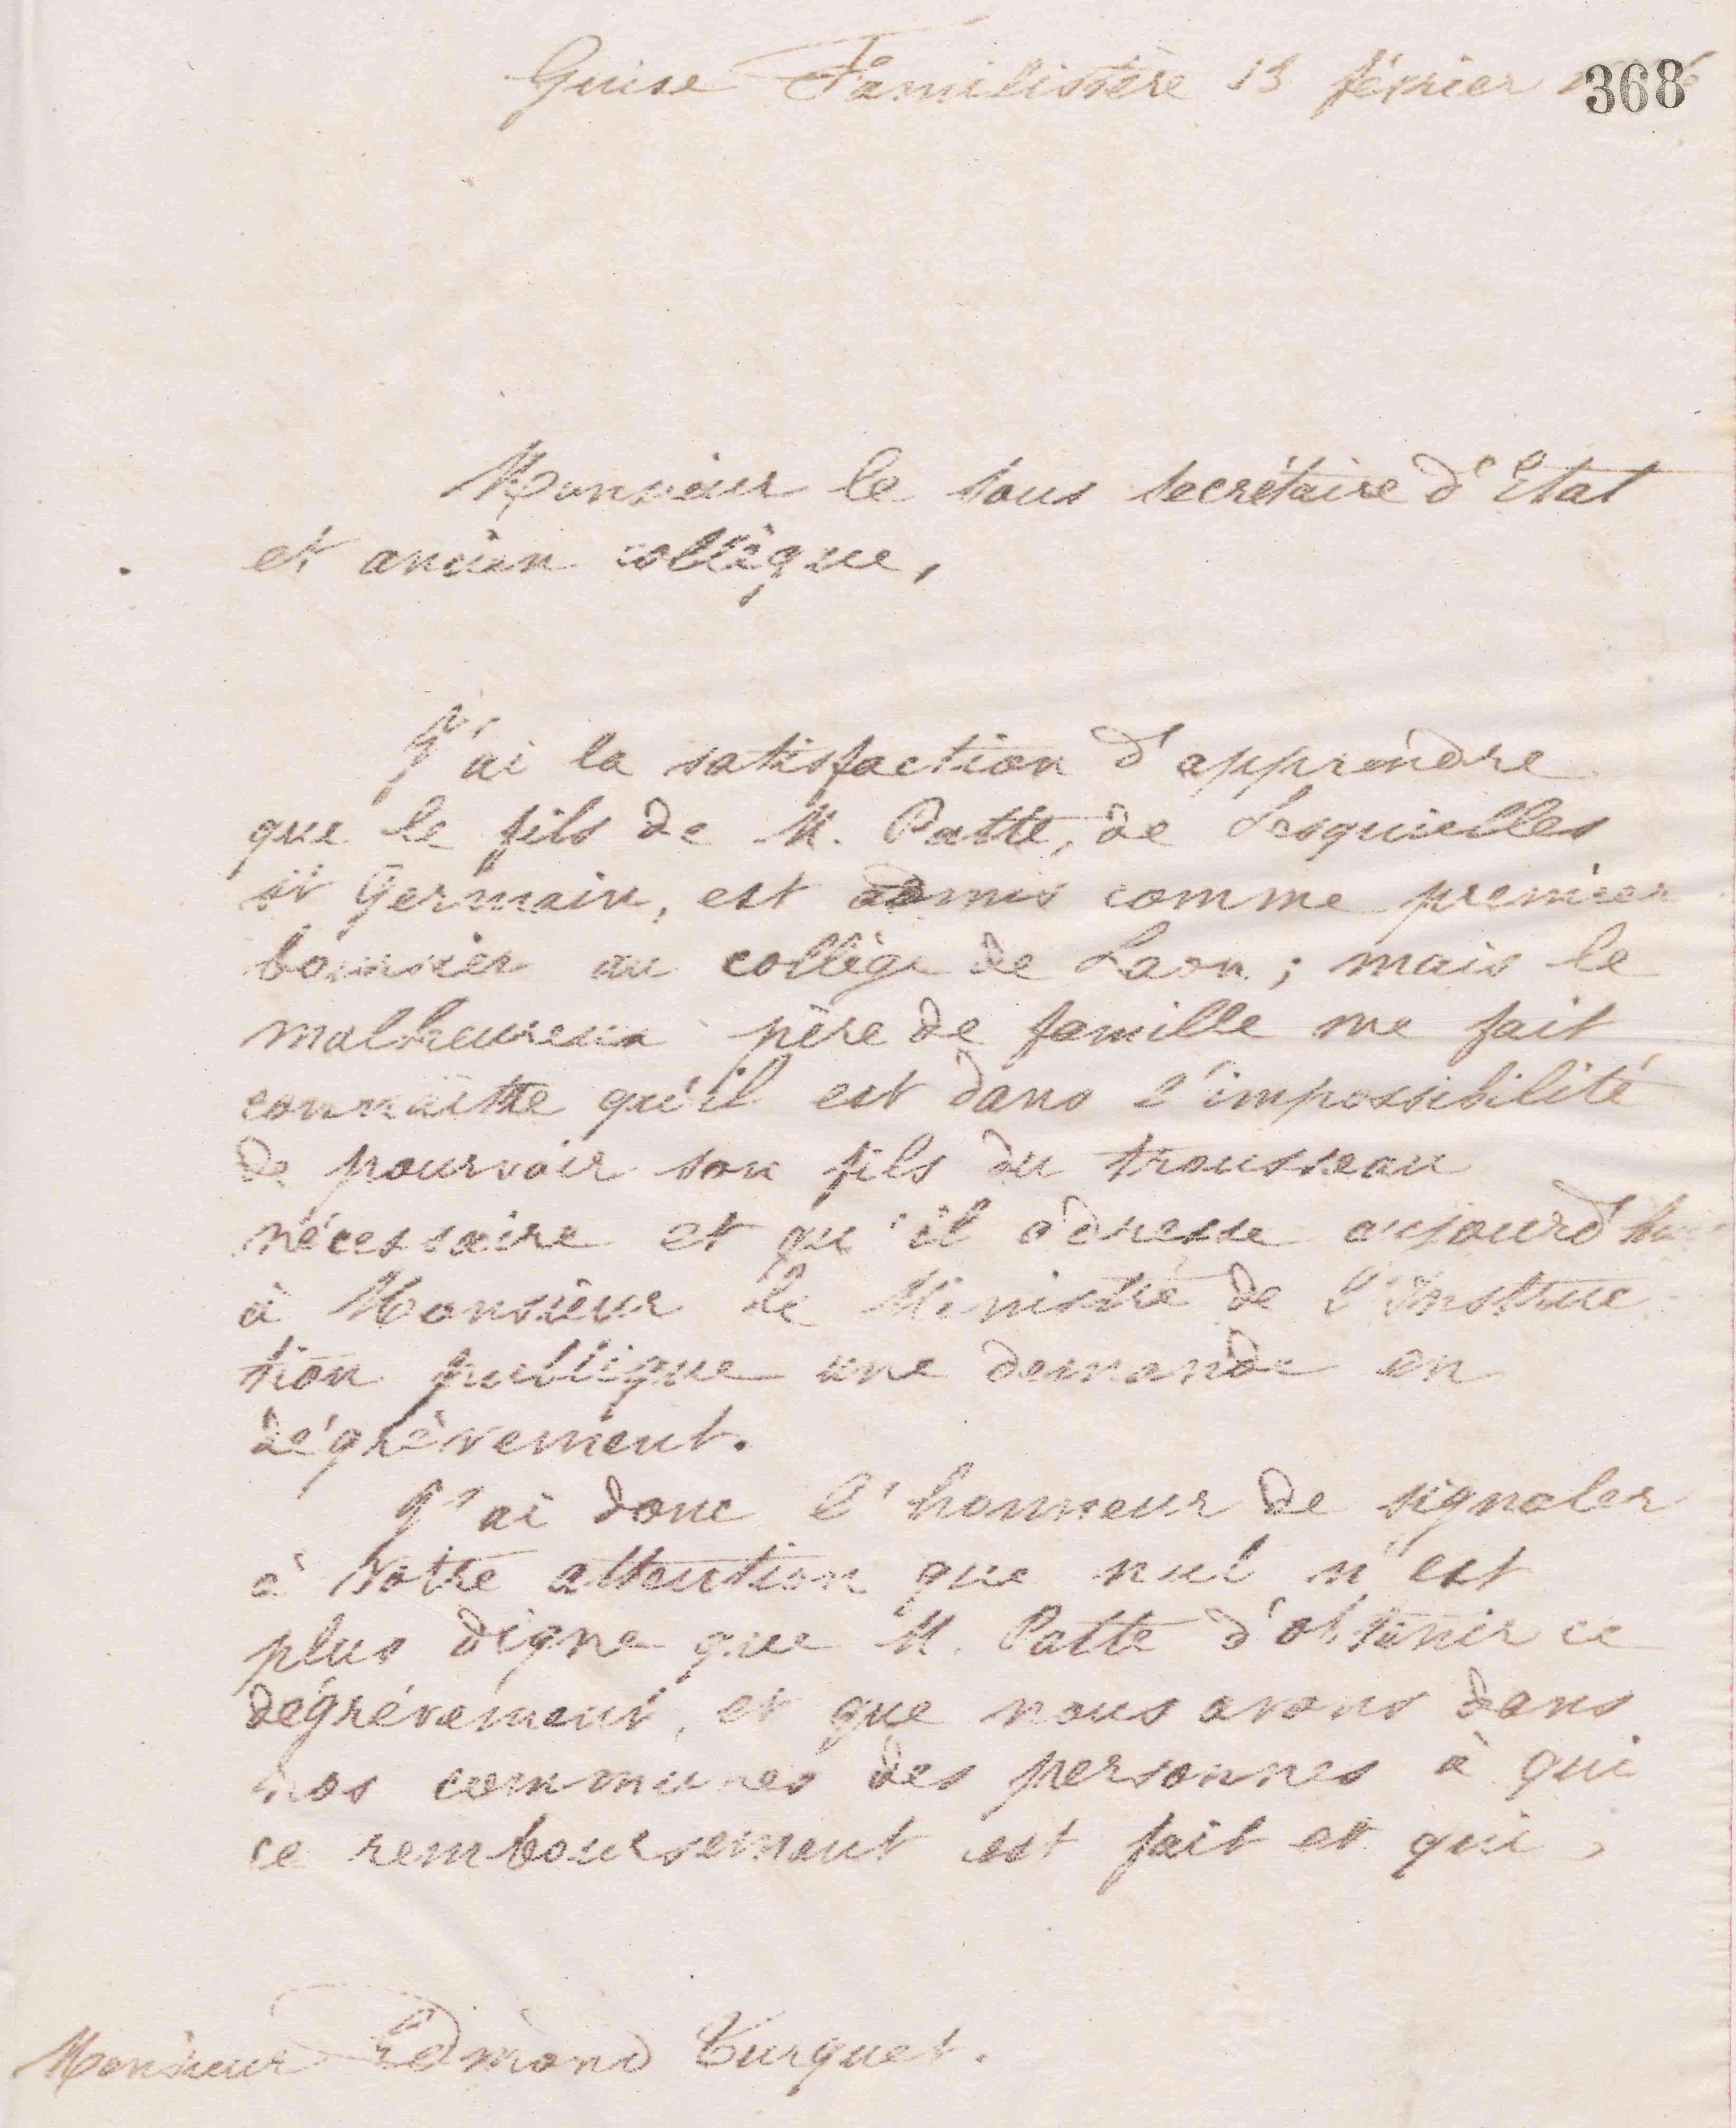 Guise Familistère 13 février
368
Monsieur le sous secrétaire d'Etat
et ancien collègue,
J'ai la satisfaction d'apprendre
que le fils de M. Patte, de Lesquielles
St Germain, est admis comme premier
boursier au collège de Laon ; mais le
malheureux père de famille me fait
connaître qu'il est dans l'impossibilité
de pourvoir son fils du trousseau
nécessaire et qu'il adresse aujourd'hui
à Monsieur le Ministre de l'Instruc-
tion publique une demande en
dégrèvement.
J'ai donc l'honneur de signaler
à votre attention que nul n'est
plus digne que M. Patte d'obtenir ce
dégrèvement, et que nous avons dans
nos communes des personnes à qui
ce remboursement est fait et qui,
Monsieur Edmond Turquet.